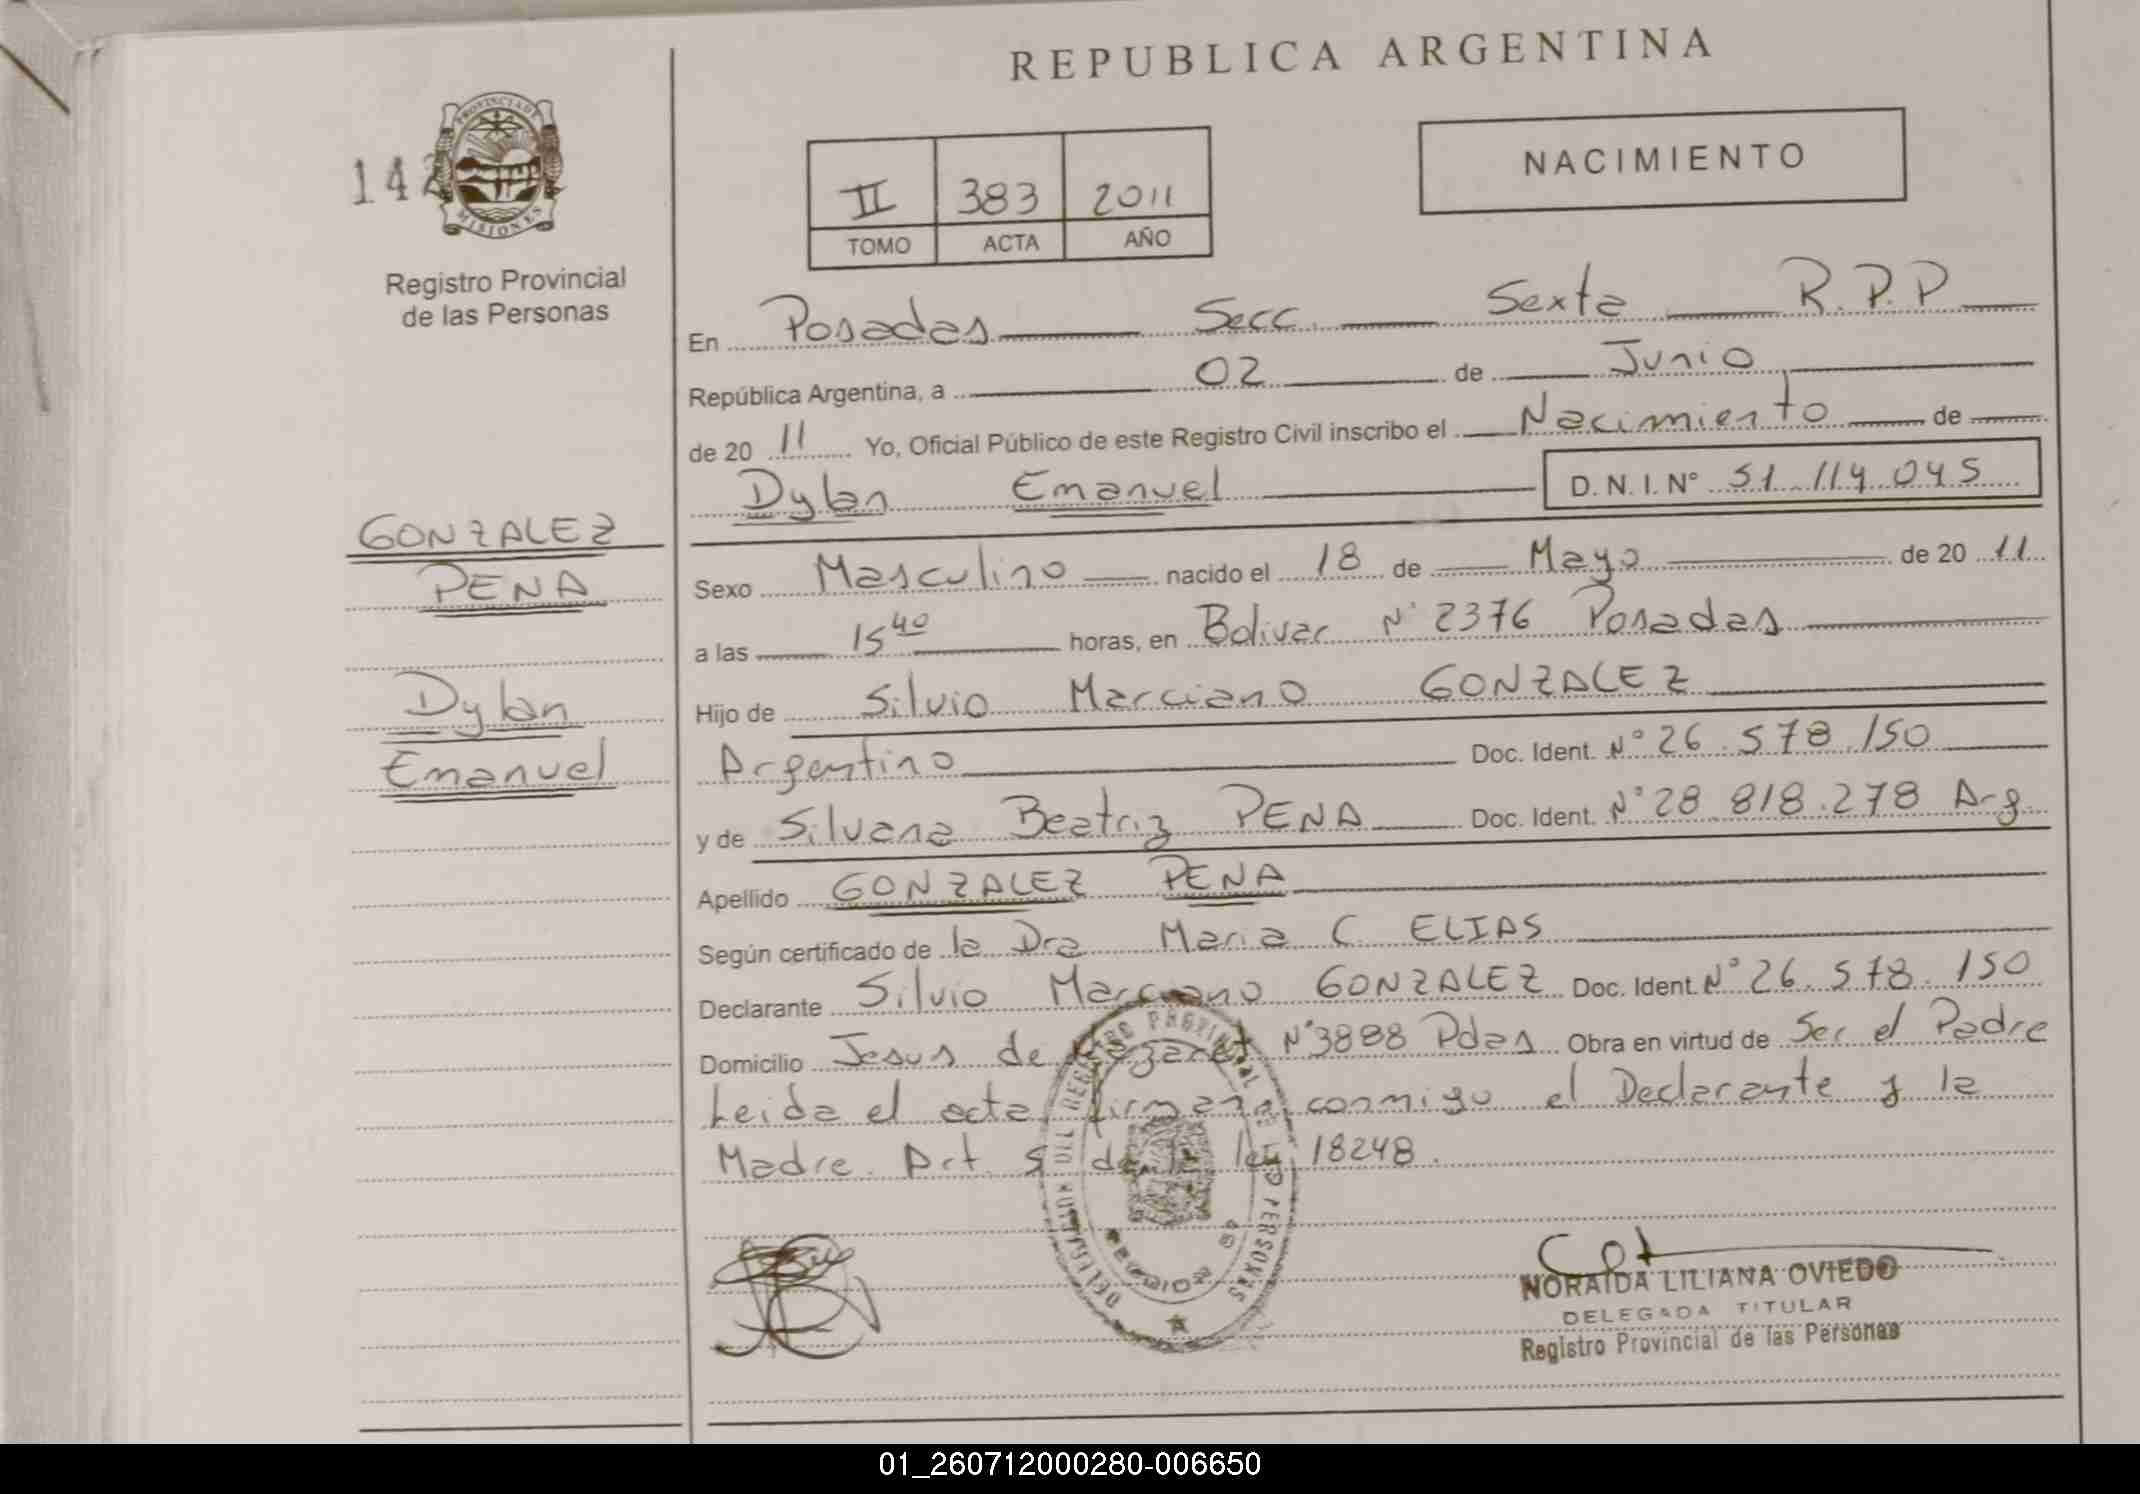 REPUBLICA ARGENTINA
14
PROVINCIA DE
MISIONES
Registro Provincial
de las Personas
II 383 2011
TOMO ACTA AÑO
NACIMIENTO
En Posadas Secc. Sexta R.P.P
República Argentina, a 02 de Junio
de 20 11 Yo, Oficial Público de este Registro Civil inscribo el Nacimiento de
Dylan Emanuel D.N.I.N° 51.114.045
GONZALEZ
PENA
Dylan
Emanuel
Sexo Masculino nacido el 18 de Mayo de 20 11
a las 15 40 horas, en Bolivar N° 2376 Posadas
Hijo de Silvio Marciano GONZALEZ
Argentino Doc. Ident. N° 26.578.150
y de Silvana Beatriz PENA Doc. Ident. N° 28.818.278 Arg.
Apellido GONZALEZ PENA
Según certificado de la Dra Maria C. ELIAS
Declarante Silvio Marciano GONZALEZ Doc. Ident. N° 26.578.150
Domicilio Jesus de Nazaret N° 3888 Pdas Obra en virtud de Ser el Padre
Leida el acta firman conmigo el Declarante y la
Madre. Art. 5 de la ley 18248.
DELEGACION DEL REGISTRO PROVINCIAL DE LAS PERSONAS
NORAIDA LILIANA OVIEDO
DELEGADA TITULAR
Registro Provincial de las Personas
01_260712000280-006650